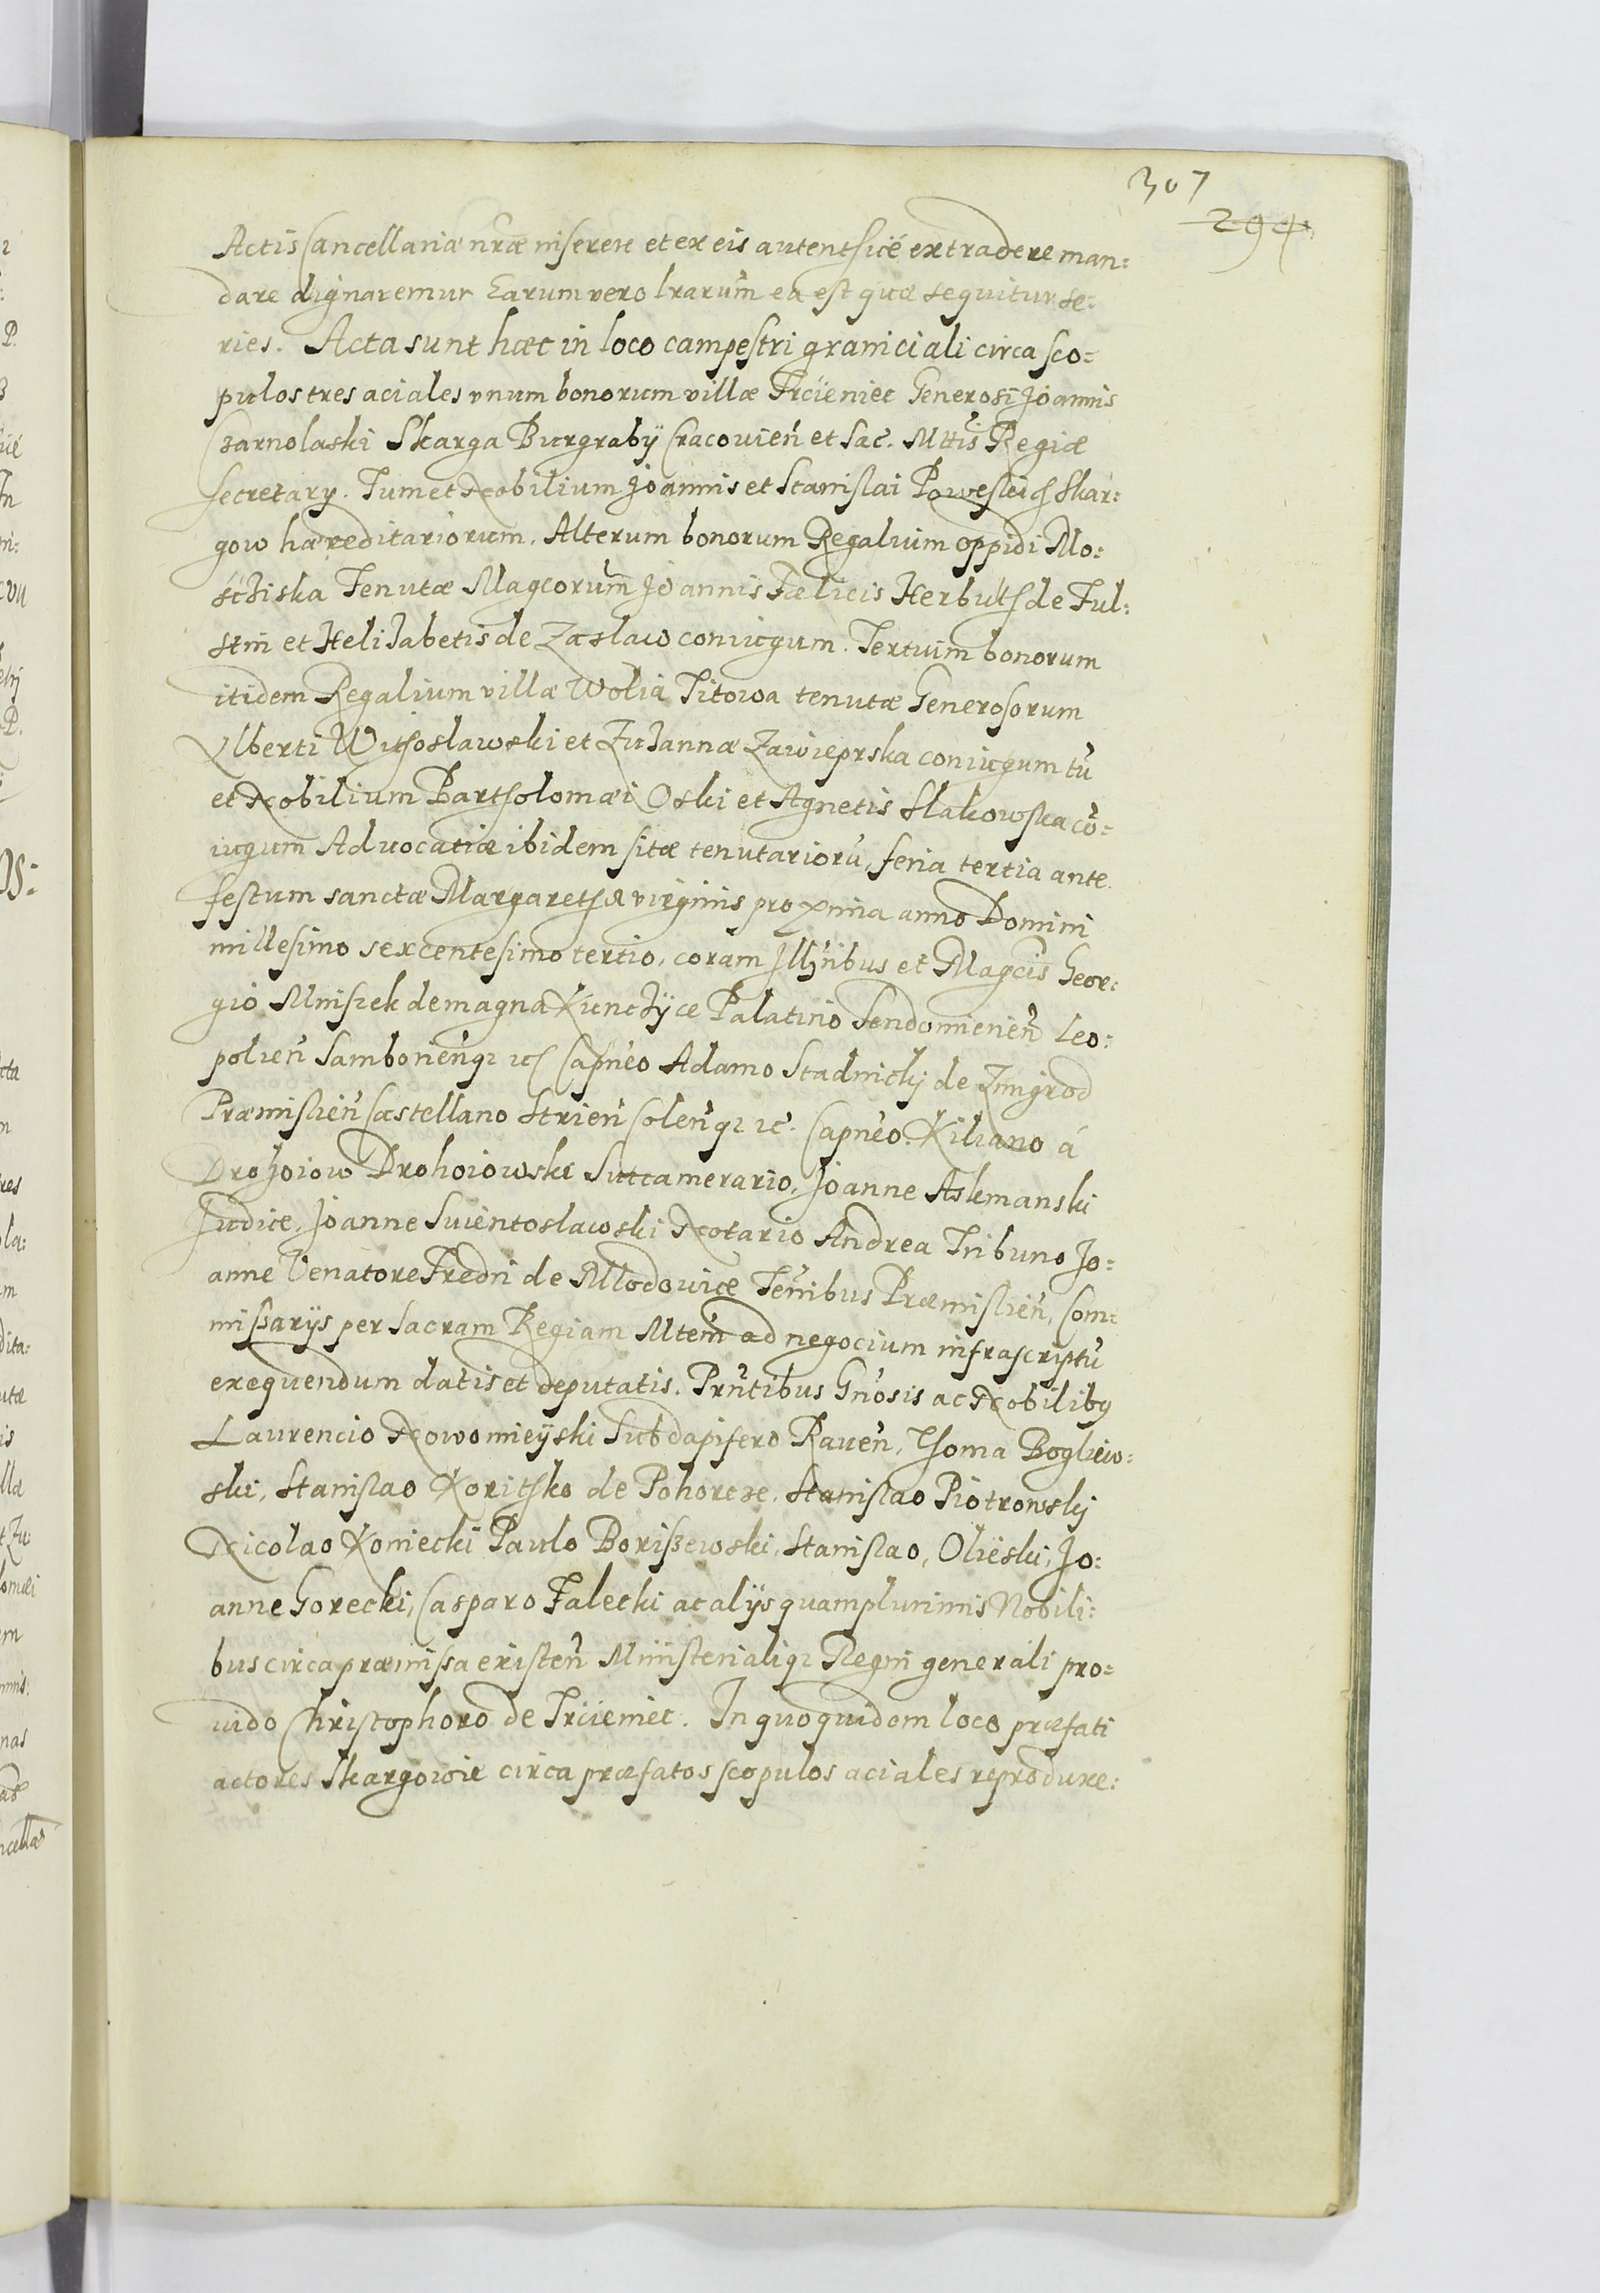 307
294
Actis Cancellariæ nr̃æ inserere et ex eis autenthicé extradere man:
dare dignaremur Earum vero lrarum̃ ea est quæ sequitur se:
ries. Acta sunt hæc in loco campestri graniciali circa sco:
pulos tres aciales vnum bonorum villæ Trcieniec Generosi Joannis
Czarnolaski Skarga Burgrabÿ Cracovień et Sac. Mttis Regiæ
Secretarÿ. Tum et Nobilium Joannis et Stanislai Poweskich Skar:
gow hæreditariorum. Alterum bonorum Regalium oppidi Mo:
sćziska Tenutæ Magcorum̃ Joannis Fælicis Herbutḣ de Ful:
stin et Helizabetis de Zaslaw coniugum. Tertium bonorum
itidem Regalium villæ Wolia Titowa tenutæ Generosorum
Alberti Withoslawski et Zuzannæ Zawieprska coniugum tũ
et Nobilium Bartholomæi Oski et Agnetis Slakowska cõ:
iugum Aduocatiæ ibidem sitæ tenutariorũ, feria tertia ante
festum sanctæ Margarethæ virginis proxima anno Domini
millesimo sexcentesimo tertio, coram Illr̃ibus et Magcis̃ Geor:
gio Mniszek de magna Kunczÿce Palatino Sendomirień Leo:
polień Samborieńq3 etc Capńeo Adamo Stadnickÿ de Zmigrod
Præmislień Castellano Strień Coleńq3 etc. Capńeo. Kiliano á
Drohoiow Drohoiowski Succamerario, Joanne Aslemanski
Judice, Joanne Swientoslawski Notario Andrea Tribuno Jo:
anne Venatore Fredri de Mlodowice Teñibus Præmislień, Com:
missarÿs per Sacram Regiam Mtem̃ ad negocium infrascriptũ
exequendum datis et deputatis. Prñtibus Gńosis ac Nobilibq
Laurencio Nowomieÿski Subdapifero Raveń, Thoma Bogliew:
ski, Stanislao Koritḣko de Pohorcze, Stanislao Piotrowskÿ
Nicolao Koniecki Paulo Boriszewski, Stanislao, Olięski, Jo:
anne Gorecki, Casparo Falecki ac alÿs quamplurimis Nobili:
bus circa præmissa existeñ Ministerialiq3 Regni generali pro:
uido Christophoro de Trcieniec. In quo quidem loco præfati
actores Skargowie circa præfatos scopulos aciales reproduxe: